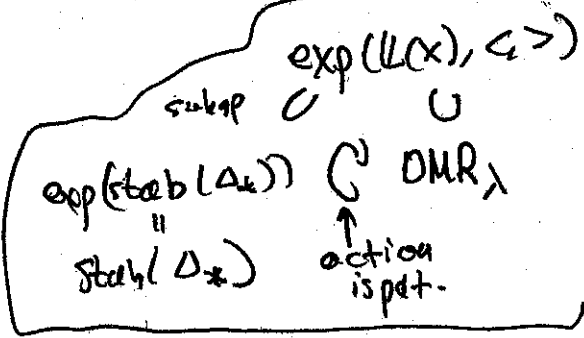 exp(𝕃(X), <,>)
subgp ∪ ∪
exp(stab(Δ_*)) ↻ DMR_λ
|| ↑
Stab(Δ_*) action
is pdt.